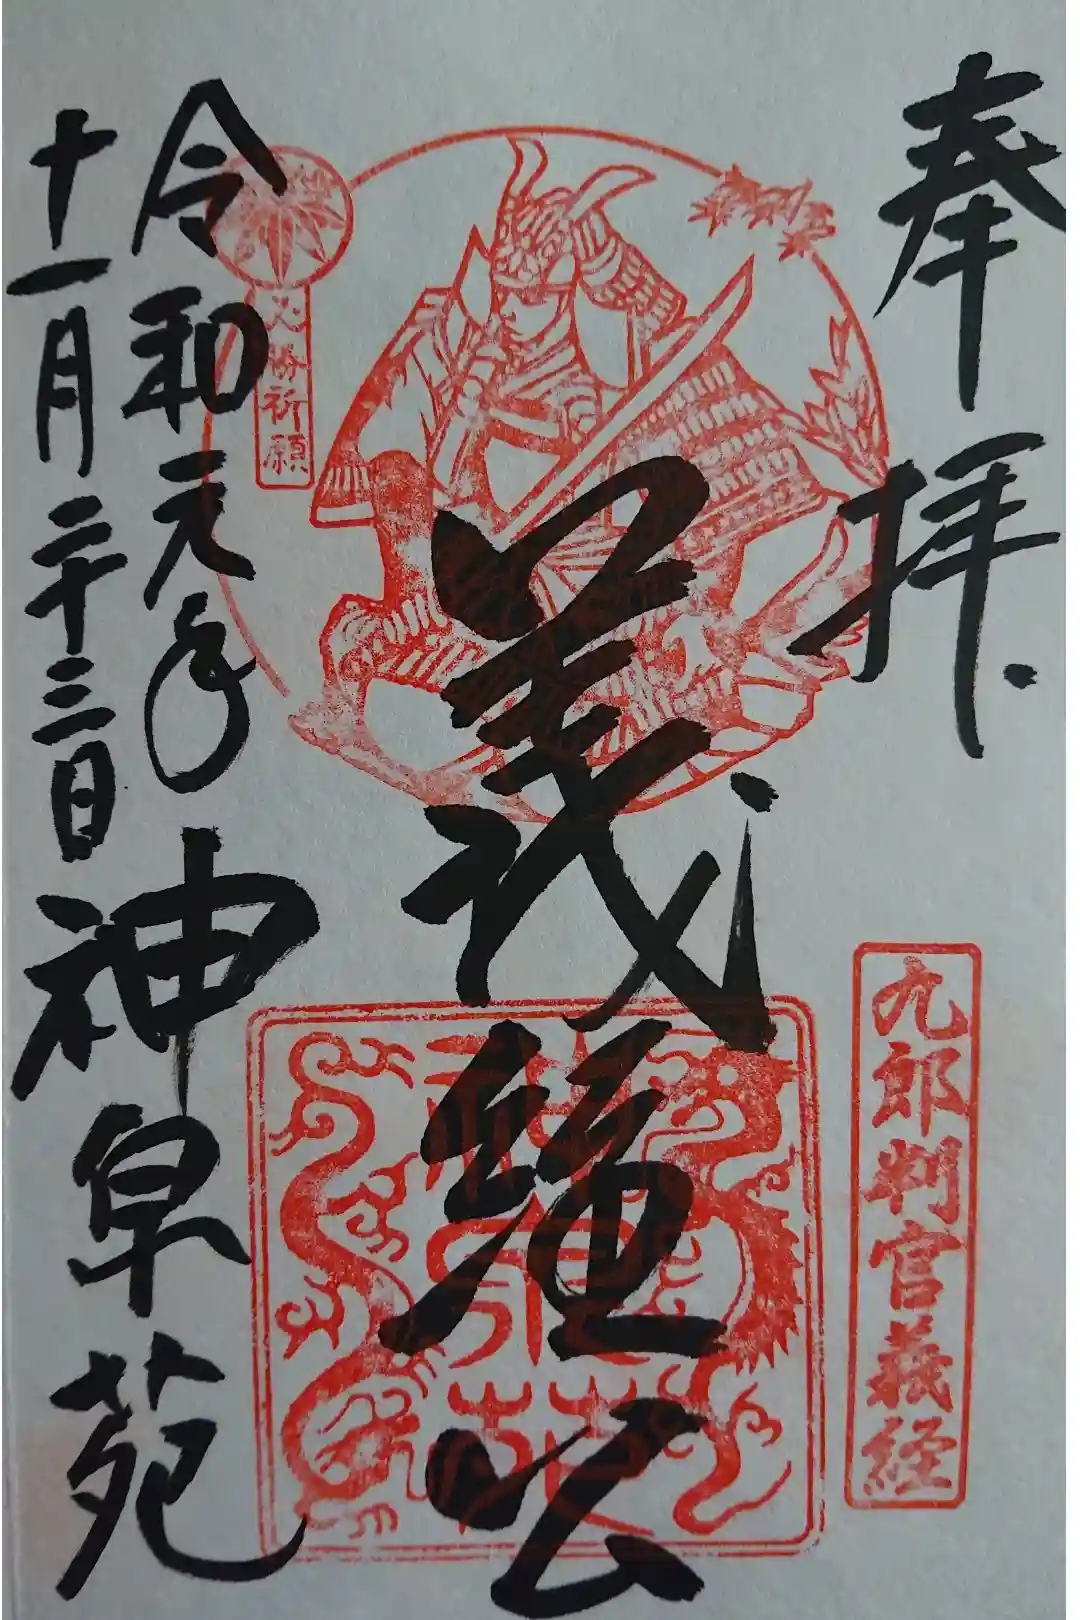 奉拝
九郎判官義経
義経公
必勝祈願
令和元年
十一月二十三日
神泉苑